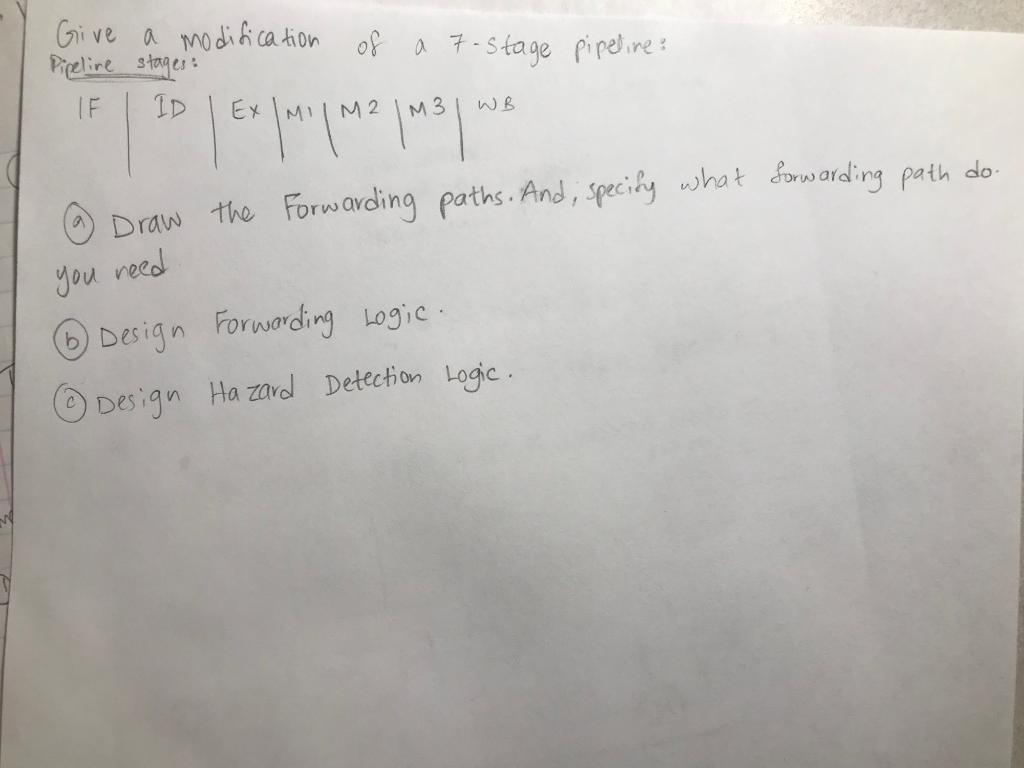 Give a modification of a 7-stage pipeline:
Pipeline stages:
IF | ID | EX | M1 | M2 | M3 | WB
(a) Draw the Forwarding paths. And, specify what forwarding path do.
you need
(b) Design Forwarding Logic.
(c) Design Hazard Detection Logic.